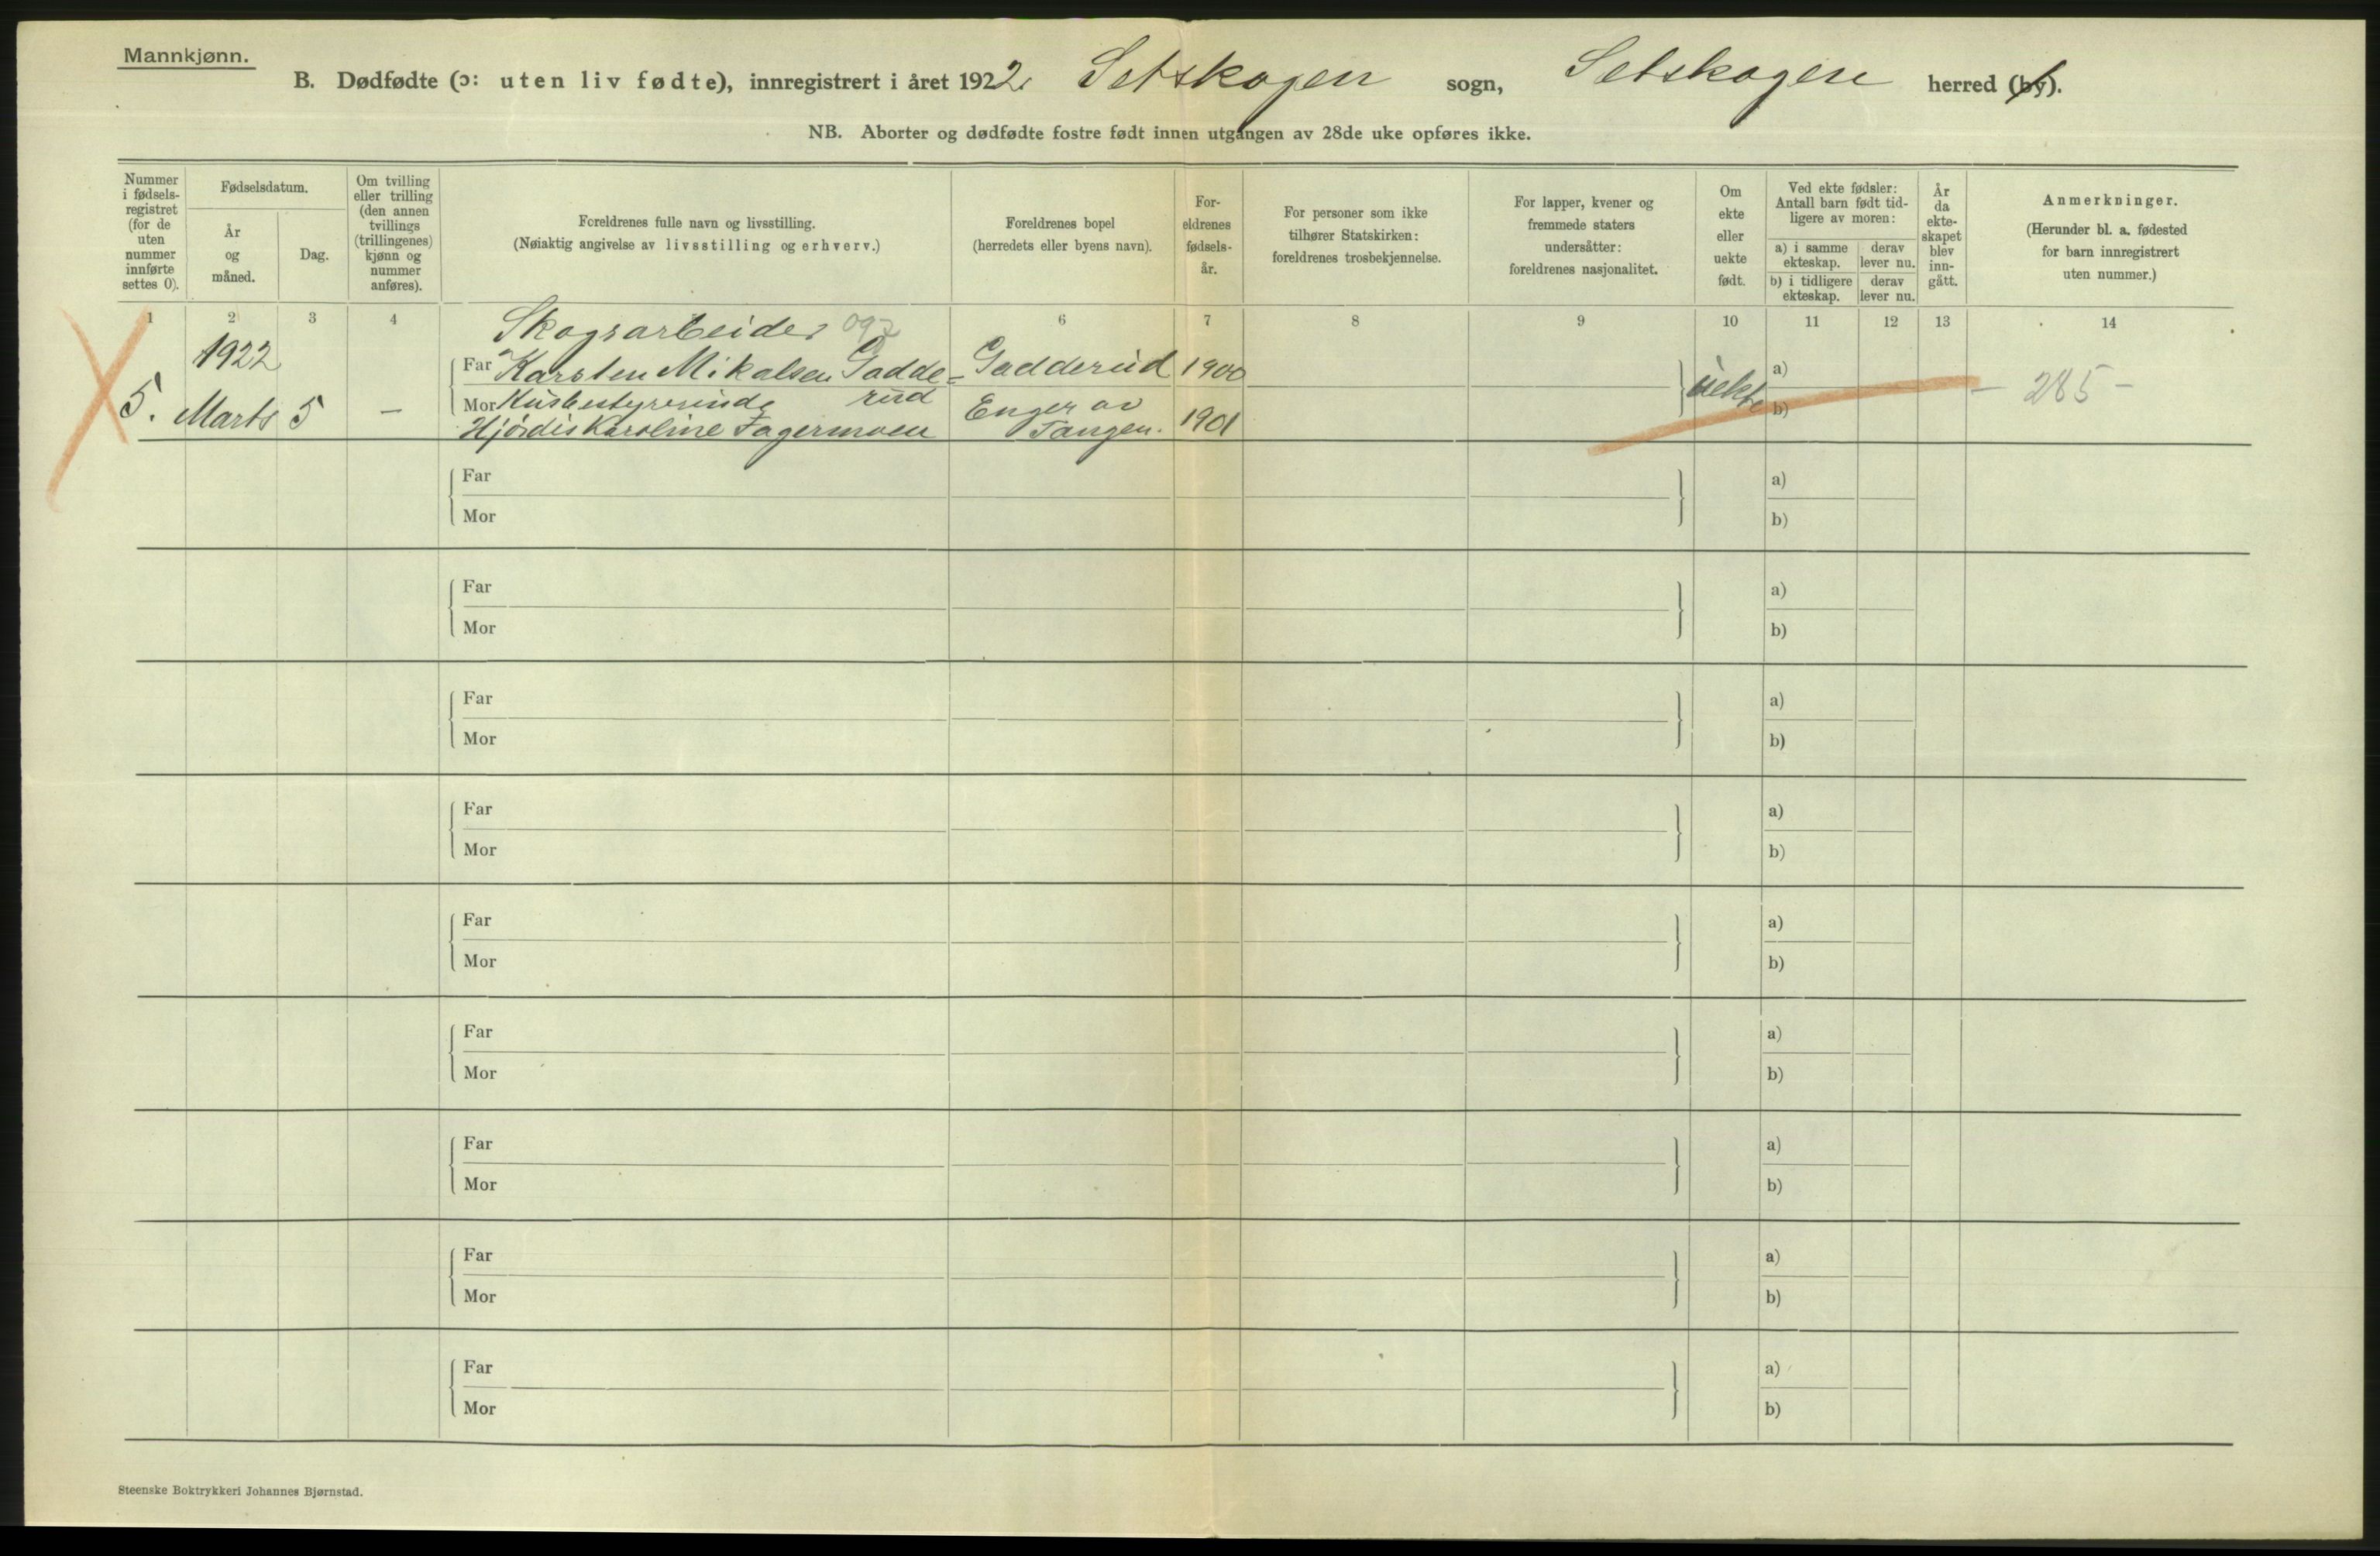 Mannkjønn.
B. Dødfødte (ɔ: uten liv fødte), innregistrert i året 1922. Setskogen sogn, Setskogen herred (by).
NB. Aborter og dødfødte fostre født innen utgangen av 28de uke opføres ikke.
Nummer i fødsels-registret (for de uten nummer innførte settes 0).
Fødselsdatum.
År og måned.
Dag.
Om tvilling eller trilling (den annen tvillings (trillingenes) kjønn og nummer anføres).
Foreldrenes fulle navn og livsstilling.
(Nøiaktig angivelse av livsstilling og erhverv.)
Foreldrenes bopel
(herredets eller byens navn).
For-eldrenes fødsels-år.
For personer som ikke tilhører Statskirken: foreldrenes trosbekjennelse.
For lapper, kvener og fremmede staters undersåtter: foreldrenes nasjonalitet.
Om ekte eller uekte født.
Ved ekte fødsler: Antall barn født tid-ligere av moren:
a) i samme ekteskap.
derav lever nu.
b) i tidligere ekteskap.
derav lever nu.
År da ekte-skapet blev inn-gått.
Anmerkninger.
(Herunder bl. a. fødested for barn innregistrert uten nummer.)
1 2 3 4 6 7 8 9 10 11 12 13 14
Skogsarbeider 097
1922 Far Karsten Mikalsen Gadde- Gadderud 1900 a)
5. Marts 5 — Mor Husbestyrerinde rud Enger av uekte b) — 285 —
Hjørdis Karoline Fagermoen Tangen. 1901
Far a)
Mor b)
Far a)
Mor b)
Far a)
Mor b)
Far a)
Mor b)
Far a)
Mor b)
Far a)
Mor b)
Far a)
Mor b)
Far a)
Mor b)
Far a)
Mor b)
Steenske Boktrykkeri Johannes Bjørnstad.